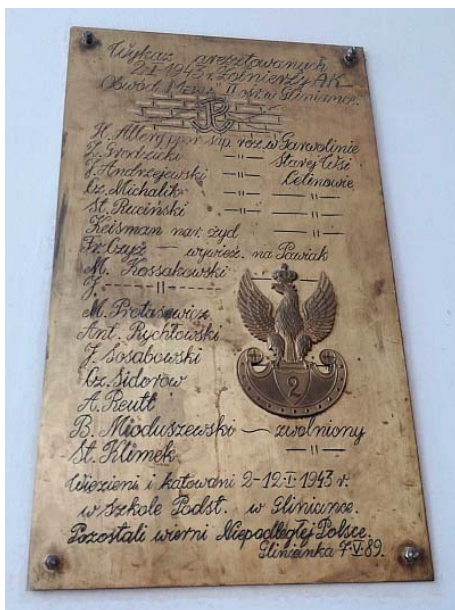 Wykaz aresztowanych
2-I-1943 r. Żołnierzy AK
Obwód "Mewa" II rej. w Gliniance.
H. Allerg ppor. sap. roz. w Garwolinie
Z. Grodzicki —||— Starej Wsi
J. Andrzejewski —||— Celinowie
Cz. Michalik —||— —||—
St. Ruciński —||— —||—
Keisman nar. żyd
Fr. Czyż — wywieź. na Pawiak
M. Kossakowski
J. —||—
M. Protasewicz
Ant. Rychtowski
J. Sosabowski
Cz. Sidorow
A. Reutt
B. Mioduszewski — zwolniony
St. Klimek —||—
2
Więzieni i katowani 2-12-I-1943 r.
w Szkole Podst. w Gliniance.
Pozostali wierni Niepodległej Polsce.
Glinianka 7-V-89.